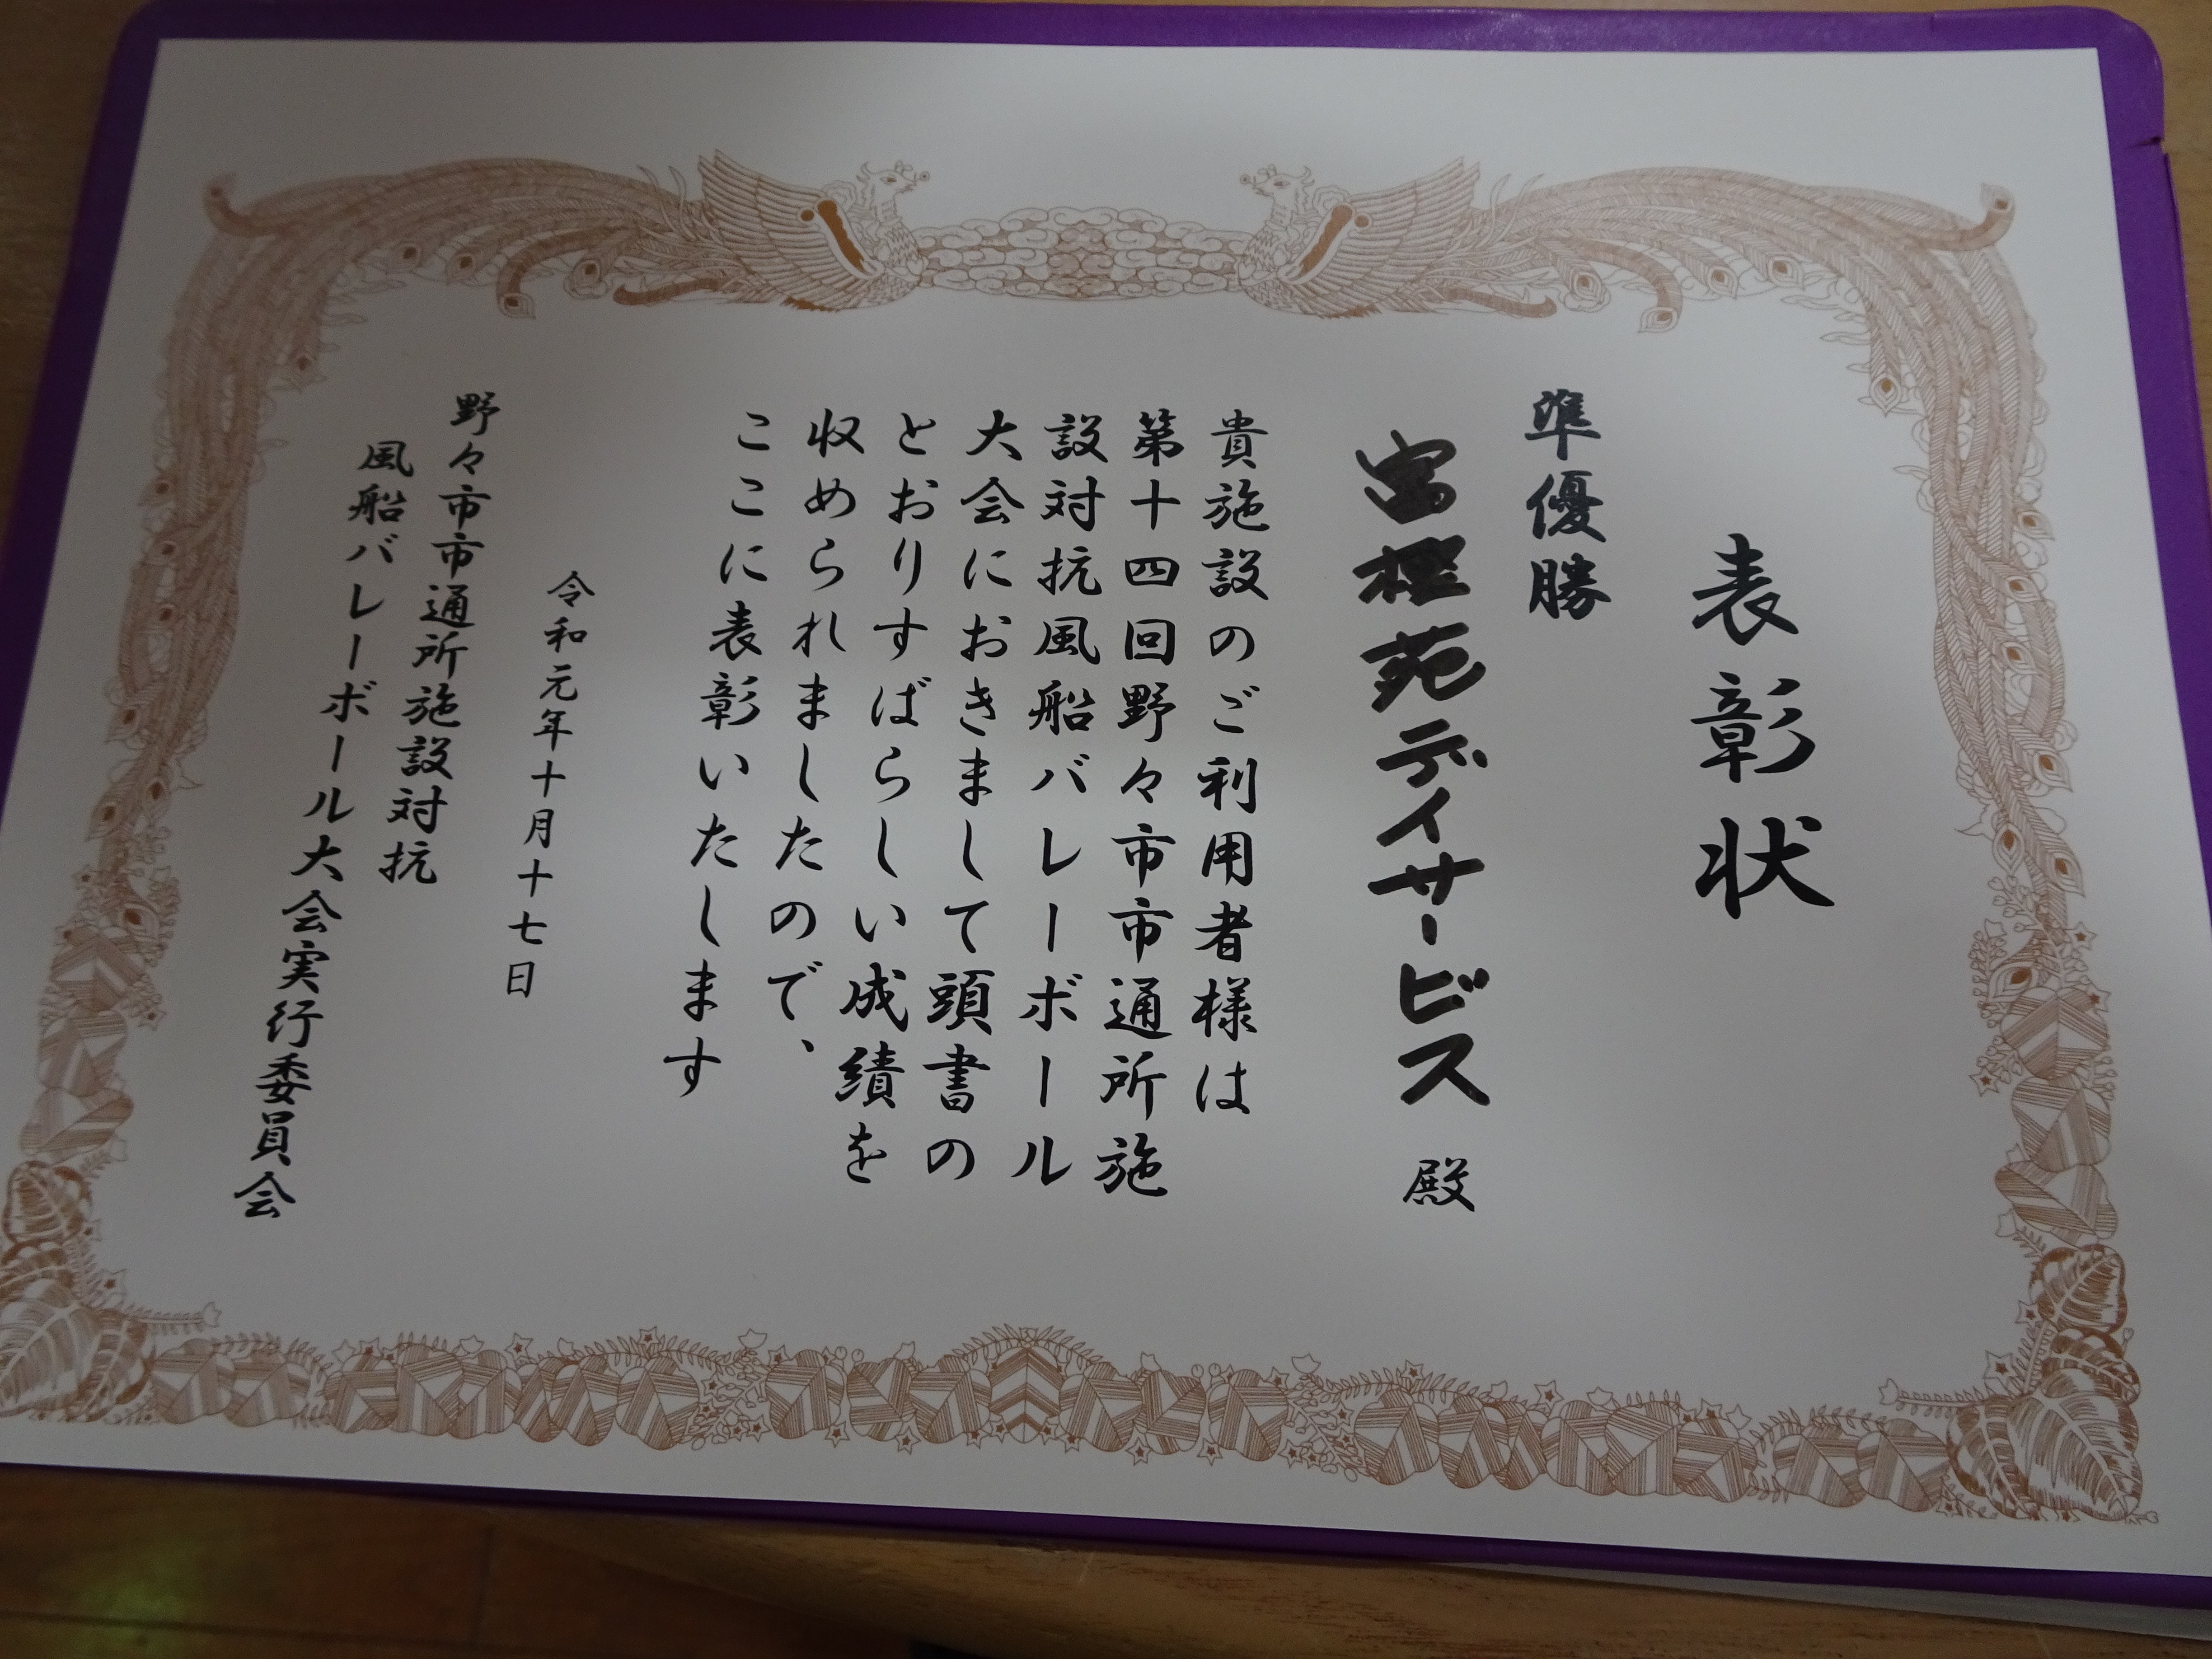 表彰状
準優勝
富樫苑デイサービス 殿
貴施設のご利用者様は
第十四回野々市市通所施
設対抗風船バレーボール
大会におきまして頭書の
とおりすばらしい成績を
収められましたので、
ここに表彰いたします
令和元年十月十七日
野々市市通所施設対抗
風船バレーボール大会実行委員会